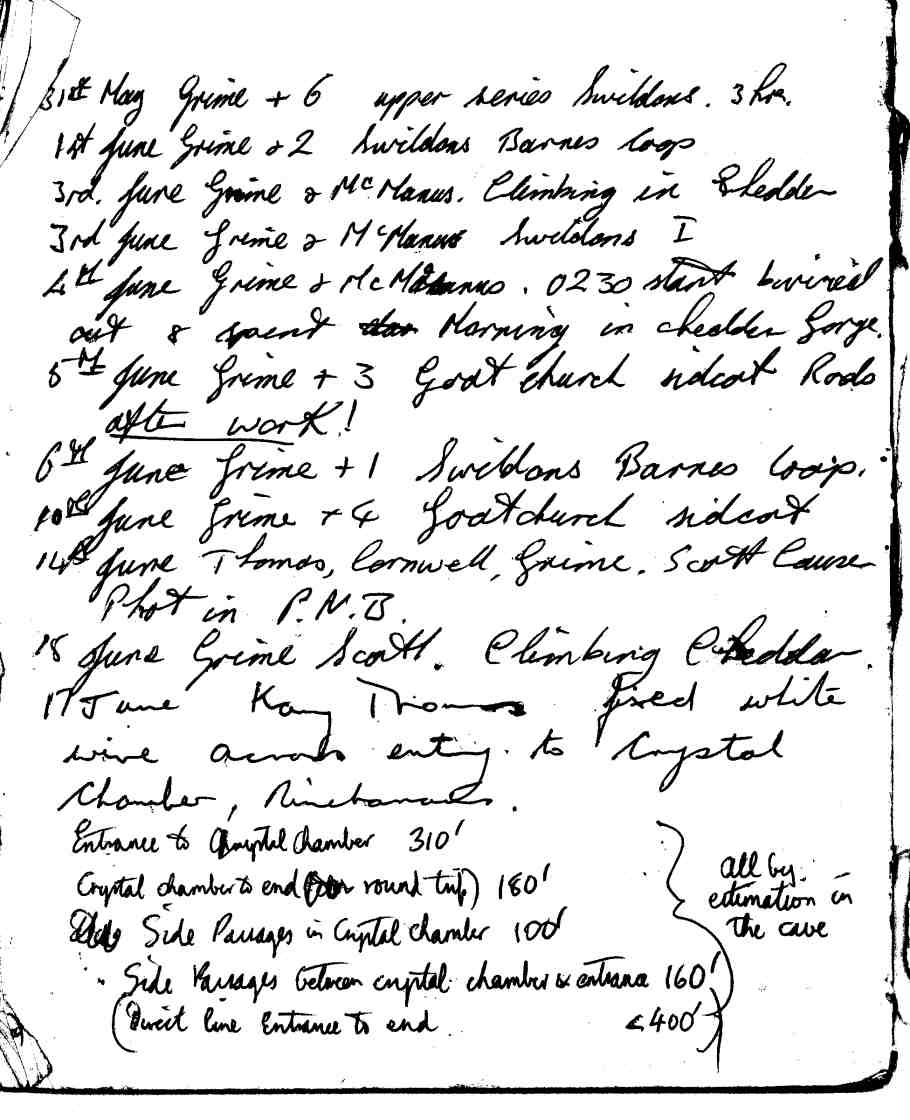 31st May Grime + 6 upper series Swildons. 3 hrs.
1st June Grime & 2 Swildons Barnes loop
3rd. June Grime & McManus. Climbing in Cheddar
3rd June Grime & McManus Swildons I
4th June Grime & McManus. 0230 start
out & spent Morning in cheddar Gorge.
5th June Grime + 3 Goatchurch sidcot Rods
after work!
6th June Grime + 1 Swildons Barnes loop.
10th June Grime + 4 Goatchurch sidcot
14th June Thomas, Cornwell, Grime. Scott Causer
Phot in P.N.B.
18 June Grime Scott. Climbing Cheddar.
17 June Kay Thomas fixed white
wire across entry to Crystal
Chamber,
Entrance to Crystal chamber 310'
Crystal chamber to end (for round trip) 180'
Side Passages in Crystal chamber 100'
" Side Passages between crystal chamber & entrance 160'
(Direct line Entrance to end <400')
All by
estimation in
the cave